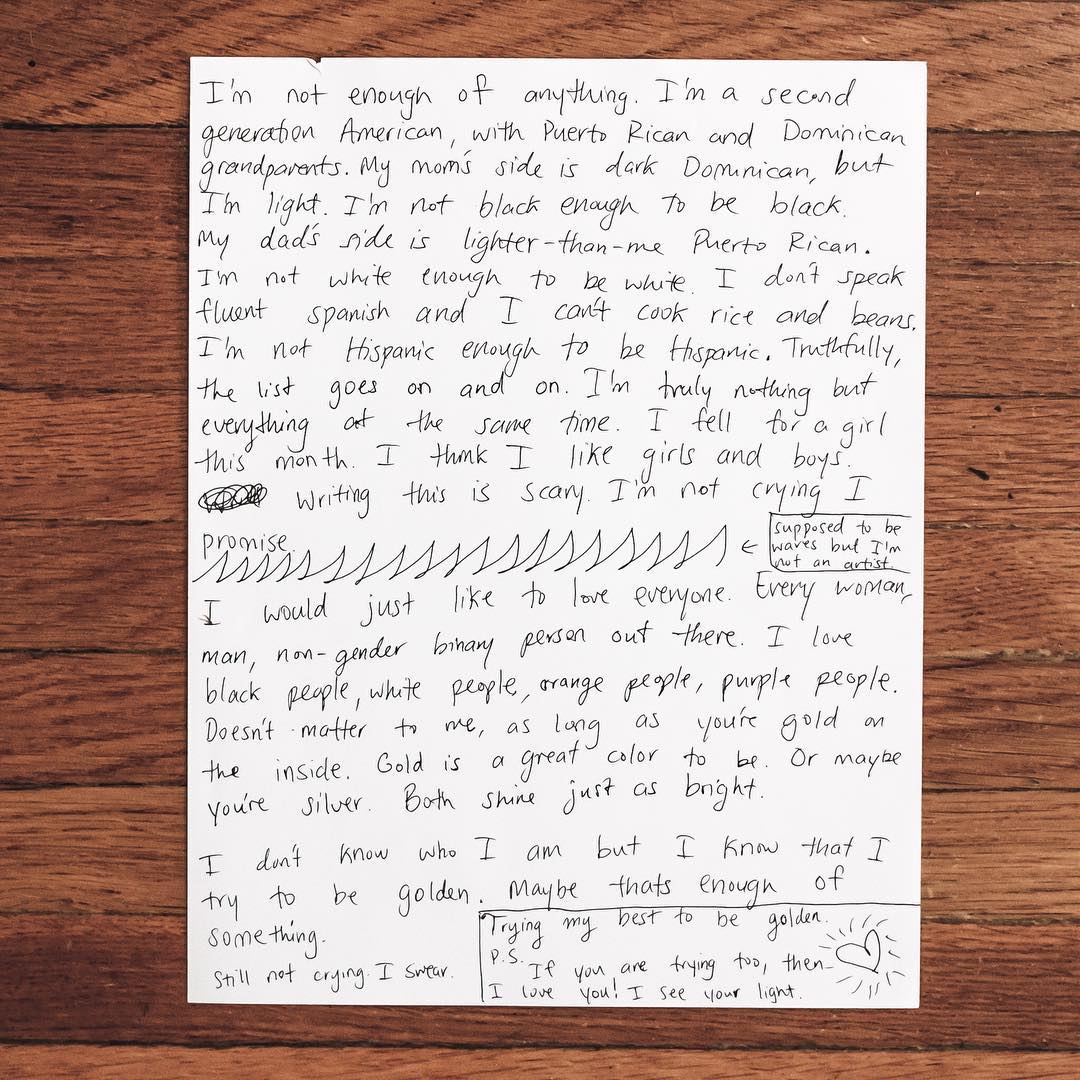 I'm not enough of anything. I'm a second
generation American, with Puerto Rican and Dominican
grandparents. My mom's side is dark Dominican, but
I'm light. I'm not black enough to be black.
My dad's side is lighter-than-me Puerto Rican.
I'm not white enough to be white. I don't speak
fluent spanish and I can't cook rice and beans.
I'm not Hispanic enough to be Hispanic. Truthfully,
the list goes on and on. I'm truly nothing but
everything at the same time. I fell for a girl
this month. I think I like girls and boys.
Writing this is scary. I'm not crying I
promise.
← supposed to be
waves but I'm
not an artist.
I would just like to love everyone. Every woman,
man, non-gender binary person out there. I love
black people, white people, orange people, purple people.
Doesn't matter to me, as long as you're gold on
the inside. Gold is a great color to be. Or maybe
you're silver. Both shine just as bright.
I don't know who I am but I know that I
try to be golden. Maybe thats enough of
something.
Still not crying I swear.
Trying my best to be golden.
P.S.
If you are trying too, then
I love you! I see your light.